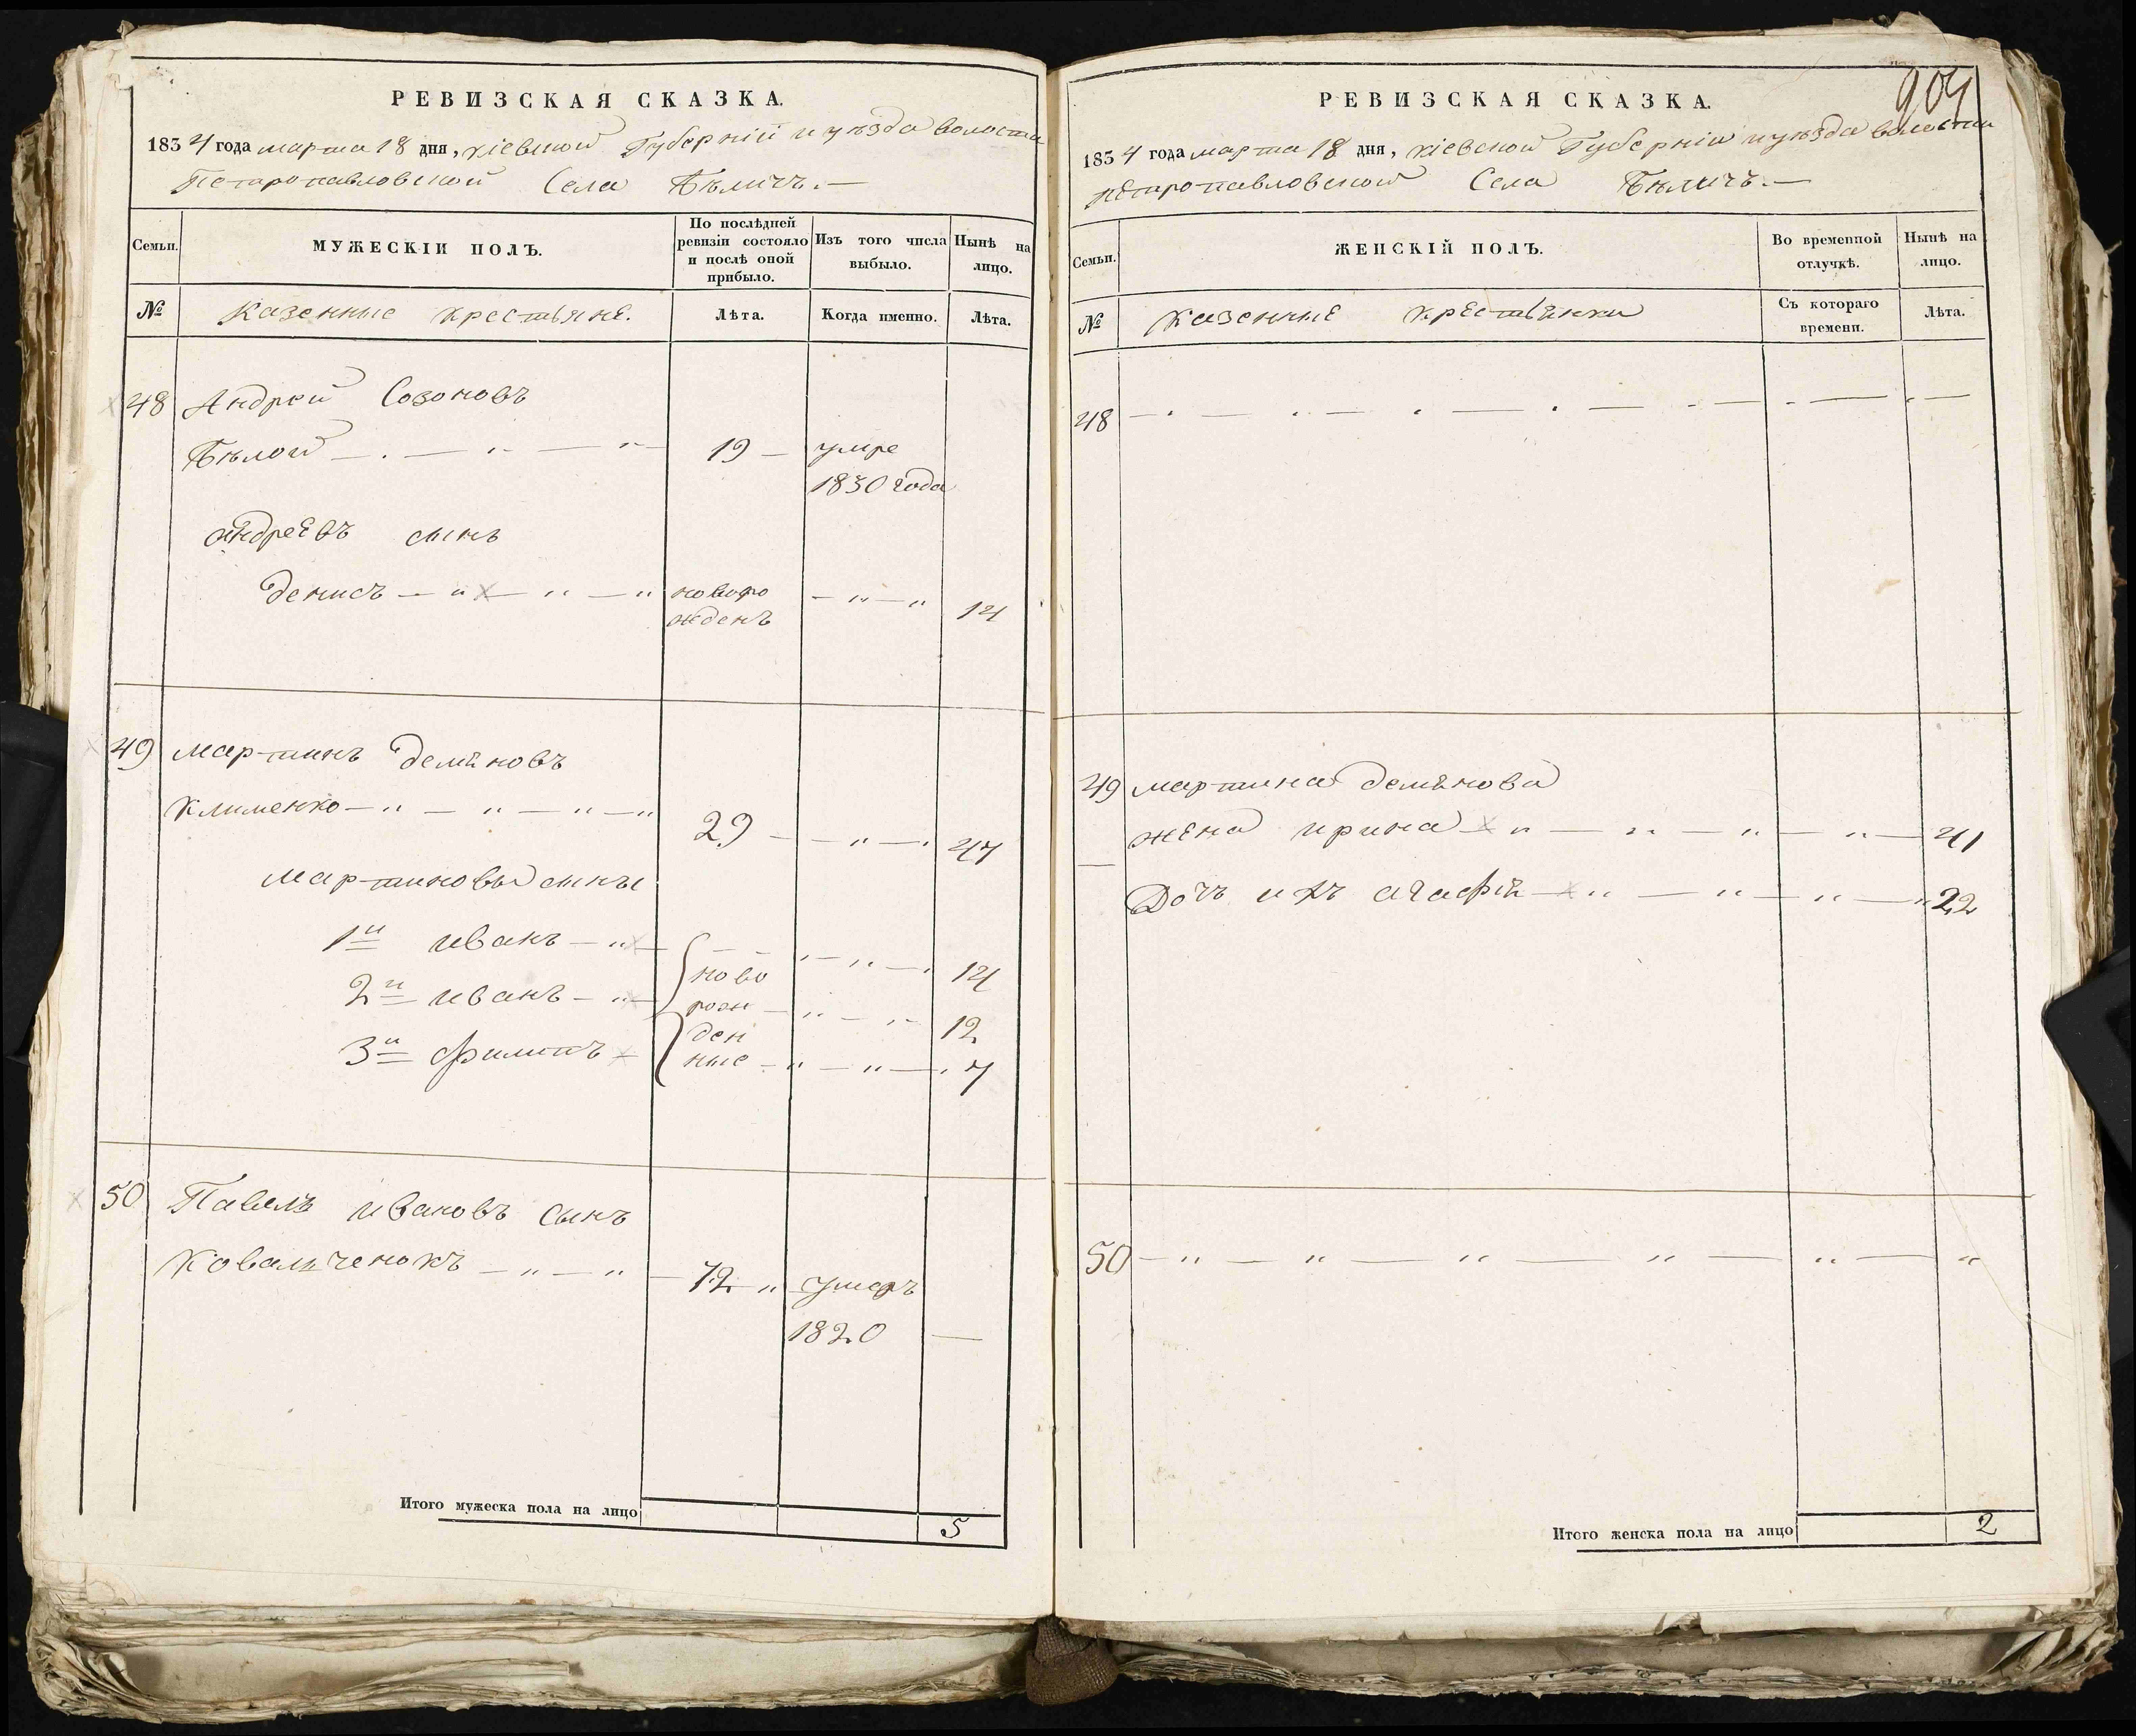 РЕВИЗСКАЯ СКАЗКА.
1834 года марта 18 дня, кіевской Губерніи и уѣзда волости
Петропавловской Села Бѣличъ.—
Семьи.
МУЖЕСКІЙ ПОЛЪ.
По послѣдней ревизіи состояло и послѣ оной прибыло.
Изъ того числа выбыло.
Нынѣ на лицо.
№
Казенные крестьяне.
Лѣта.
Когда именно.
Лѣта.
48 Андрей Созоновъ
Бѣлой — 19 — умре
1830 года
андреевъ сынъ
денисъ — новоро — 14
жденъ
49 мартинъ демяновъ
Клименко — 29 — 47
мартиновы сыны
1й иванъ — 14
ново
2й иванъ — рож — 12
ден
3й филипъ — ные — 7
50 Павелъ ивановъ сынъ
Ковальченокъ — 72 умеръ
1820 —
Итого мужеска пола на лицо 5
904
РЕВИЗСКАЯ СКАЗКА.
1834 года марта 18 дня, кіевской Губерніи и уѣзда волости
петропавловской Села Бѣличъ.—
Семьи.
ЖЕНСКІЙ ПОЛЪ.
Во временной отлучкѣ.
Нынѣ на лицо.
№
Казенные крестьянки
Съ котораго времени.
Лѣта.
48
49 мартина демянова
жена ирина — 41
Дочъ ихъ агафія — 22
50
Итого женска пола на лицо 2